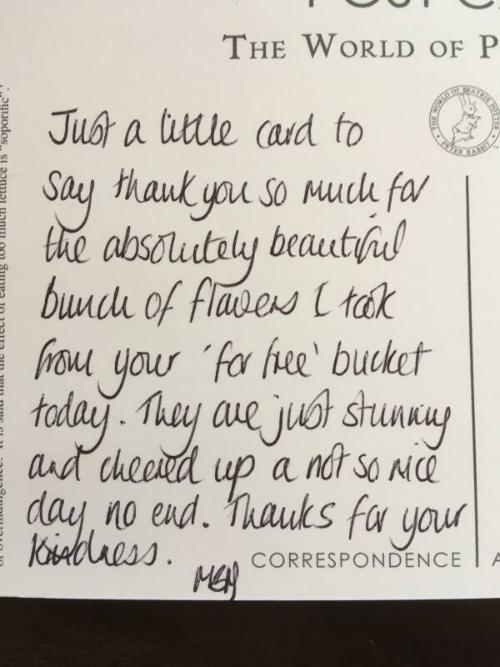 POSTC
THE WORLD OF P
THE WORLD OF BEATRIX POTTER
PETER RABBIT
TM
Just a little card to
say thank you so much for
the absolutely beautiful
bunch of flowers I took
from your 'for free' bucket
today. They are just stunning
and cheered up a not so nice
day no end. Thanks for your
kindness.
CORRESPONDENCE
A
It is said that the effect of eating too much lettuce is "soporific".